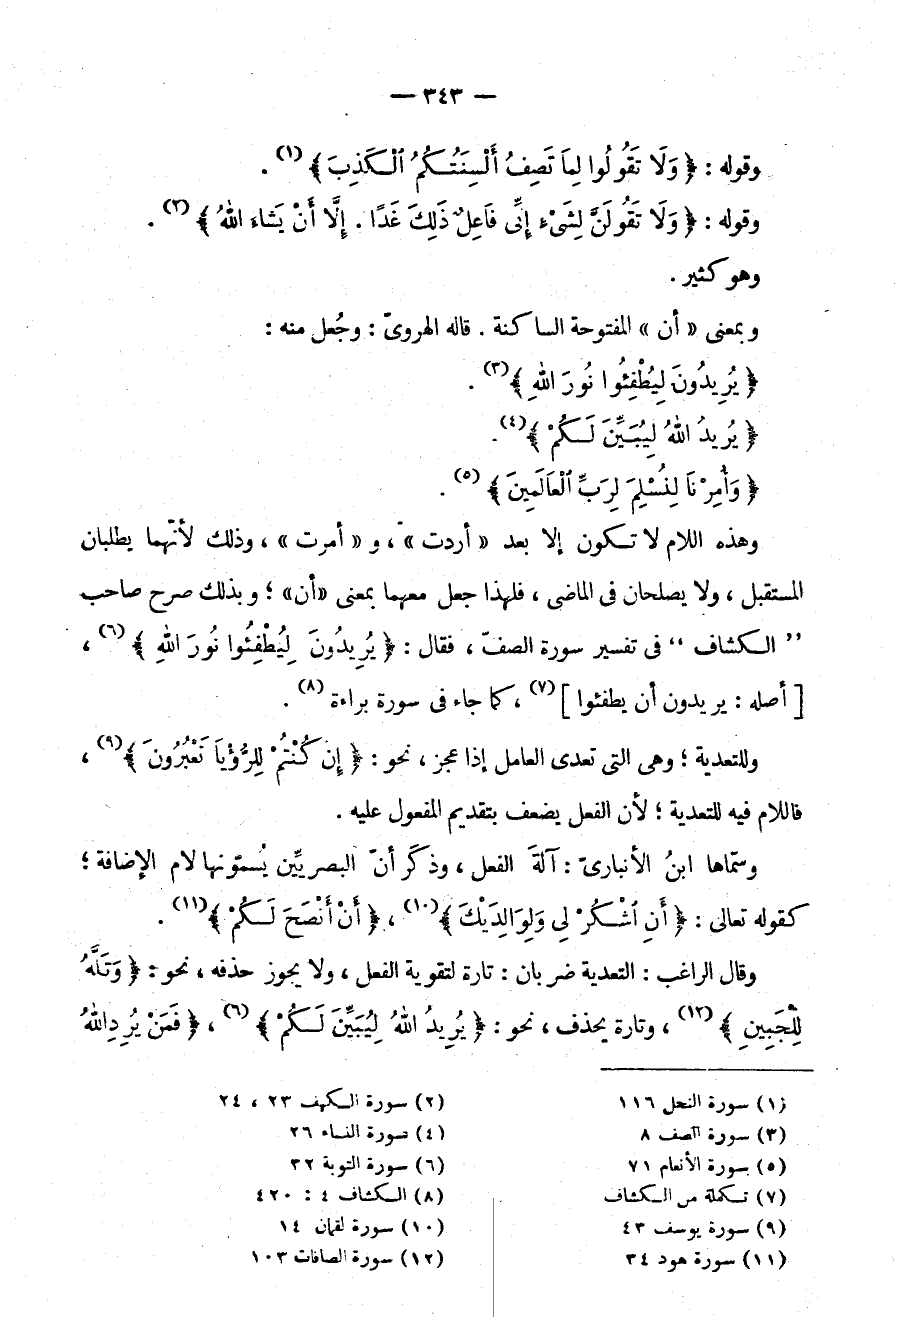 — ٣٤٣ —
وقوله : ﴿ وَلَا تَقُولُوا لِمَا تَصِفُ أَلْسِنَتُكُمُ ٱلْكَذِبَ ﴾(١) .
وقوله : ﴿ وَلَا تَقُولَنَّ لِشَىْءٍ إِنِّى فَاعِلٌ ذَلِكَ غَدًا . إِلَّا أَنْ يَشَاءَ اللهُ ﴾(٢) .
وهو كثير .
وبمعنى « أن » المفتوحة الساكنة . قاله الهروىّ : وجُعل منه :
﴿ يُرِيدُونَ لِيُطْفِئُوا نُورَ اللهِ ﴾(٣) .
﴿ يُرِيدُ اللهُ لِيُبَيِّنَ لَكُمْ ﴾(٤) .
﴿ وَأُمِرْنَا لِنُسْلِمَ لِرَبِّ ٱلْعَالَمِينَ ﴾(٥) .
وهذه اللام لا تكون إلا بعد « أردت » ، و « أمرت » ، وذلك لأنّهما يطلبان
المستقبل ، ولا يصلحان فى الماضى ، فلهذا جعل معهما بمعنى «أن» ؛ وبذلك صرح صاحب
” الكشاف “ فى تفسير سورة الصفّ ، فقال : ﴿ يُرِيدُونَ لِيُطْفِئُوا نُورَ اللهِ ﴾(٦) ،
[ أصله : يريدون أن يطفئوا ](٧) ، كما جاء فى سورة براءة(٨) .
وللتعدية ؛ وهى التى تعدى العامل إذا عجز ، نحو : ﴿ إِن كُنْتُمْ لِلرُّؤْيَا تَعْبُرُونَ ﴾(٩) ،
فاللام فيه للتعدية ؛ لأن الفعل يضعف بتقديم المفعول عليه .
وسمّاها ابنُ الأنبارىّ : آلَةَ الفعل ، وذكَر أنّ البصريِّين يُسمّونها لام الإضافة ؛
كقوله تعالى : ﴿ أَنِ ٱشْكُرْ لِى وَلِوَالِدَيْكَ ﴾(١٠) ، ﴿ أَنْ أَنْصَحَ لَكُمْ ﴾(١١) .
وقال الراغب : التعدية ضربان : تارة لتقوية الفعل ، ولا يجوز حذفه ، نحو : ﴿ وَتَلَّهُ
لِلْجَبِينِ ﴾(١٢) ، وتارة يحذف ، نحو : ﴿ يُرِيدُ اللهُ لِيُبَيِّنَ لَكُمْ ﴾(٦) ، ﴿ فَمَنْ يُرِدِ اللهُ
(١) سورة النحل ١١٦ (٢) سورة الكهف ٢٣ ، ٢٤
(٣) سورة الصف ٨ (٤) سورة النساء ٢٦
(٥) سورة الأنعام ٧١ (٦) سورة التوبة ٣٢
(٧) تكملة من الكشاف (٨) الكشاف ٤ : ٤٢٠
(٩) سورة يوسف ٤٣ (١٠) سورة لقمان ١٤
(١١) سورة هود ٣٤ (١٢) سورة الصافات ١٠٣